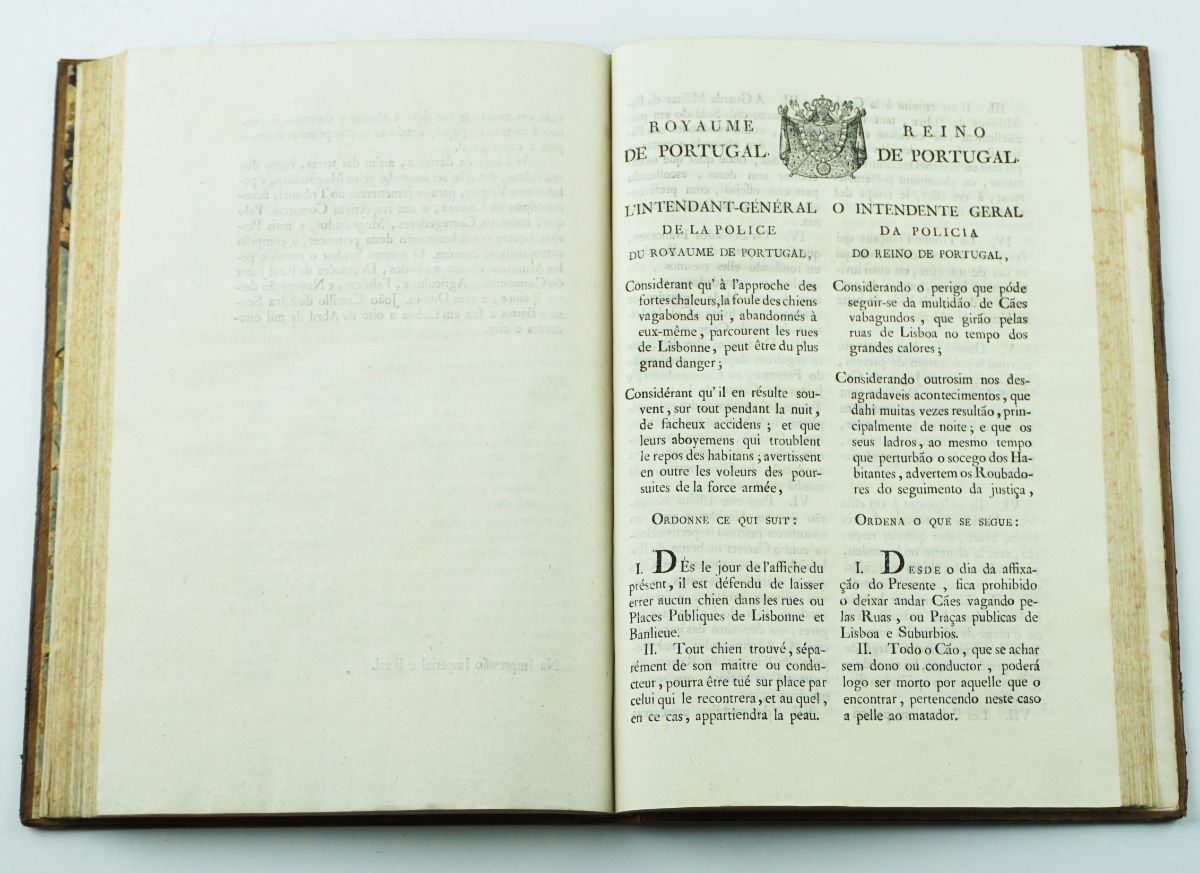 ROYAUME
DE PORTUGAL.
L'INTENDANT-GÉNÉRAL
DE LA POLICE
DU ROYAUME DE PORTUGAL,
Considerant qu' à l'approche des
fortes chaleurs, la foule des chiens
vagabonds qui, abandonnés à
eux-même, parcourent les rues
de Lisbonne, peut être du plus
grand danger;
Considérant qu'il en résulte sou-
vent, sur tout pendant la nuit,
de facheux accidens; et que
leurs aboyemens qui troublent
le repos des habitans; avertissent
en outre les voleurs des pour-
suites de la force armée,
ORDONNE CE QUI SUIT:
I. DÉs le jour de l'affiche du
présent, il est défendu de laisser
errer aucun chien dans les rues ou
Places Publiques de Lisbonne et
Banlieue.
II. Tout chien trouvé, sépa-
rément de son maitre ou condu-
cteur, pourra être tué sur place par
celui qui le recontrera, et au quel,
en ce cas, appartiendra la peau.
REINO
DE PORTUGAL.
O INTENDENTE GERAL
DA POLICIA
DO REINO DE PORTUGAL,
Considerando o perigo que póde
seguir-se da multidão de Cães
vabagundos, que girão pelas
ruas de Lisboa no tempo dos
grandes calores;
Considerando outrosim nos des-
agradaveis acontecimentos, que
dahi muitas vezes resultão, prin-
cipalmente de noite; e que os
seus ladros, ao mesmo tempo
que perturbão o socego dos Ha-
bitantes, advertem os Roubado-
res do seguimento da justiça,
ORDENA O QUE SE SEGUE:
I. DESDE o dia da affixa-
ção do Presente, fica prohibido
o deixar andar Cães vagando pe-
las Ruas, ou Praças publicas de
Lisboa e Suburbios.
II. Todo o Cão, que se achar
sem dono ou conductor, poderá
logo ser morto por aquelle que o
encontrar, pertencendo neste caso
a pelle ao matador.